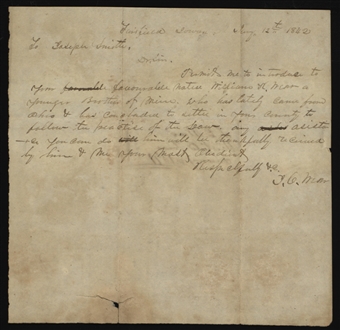 Fairfield Iowa, Aug 12th 1842
To Joseph Smith,
Permit me to introduce to
your favourable notice William R. Mear a
younger Brother of mine, who has lately came from
Ohio & has concluded to settle in your County to
follow the practice of the Law. any assist
you can do him will be thankfully received
by him & me your most obedient
Respectfully &c